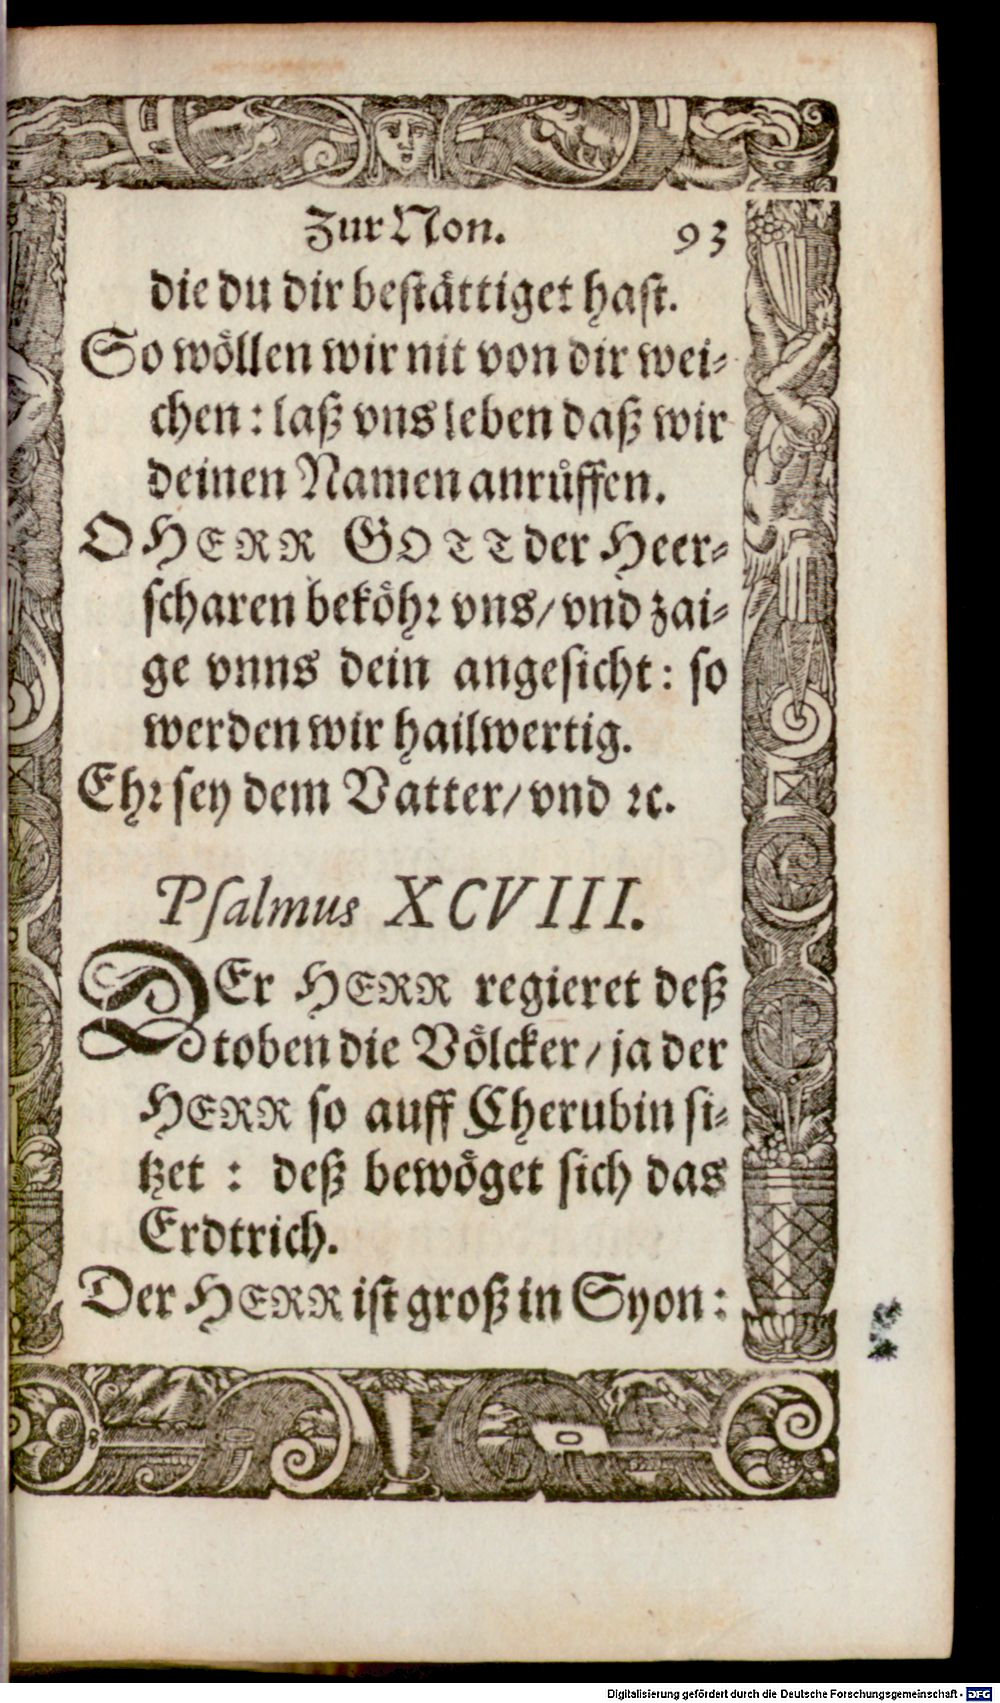 Zur Non. 93
die du dir bestättiget hast.
So wöllen wir nit von dir wei-
chen: laß vns leben daß wir
deinen Namen anrůffen.
O HERR GOTT der Heer-
scharen beköhr vns/ vnd zai-
ge vnns dein angesicht: so
werden wir hailwertig.
Ehr sey dem Vatter/ vnd ꝛc.
Psalmus XCVIII.
DEr HERR regieret deß
toben die Völcker/ ja der
HERR so auff Cherubin si-
tzet : deß bewöget sich das
Erdtrich.
Der HERR ist groß in Syon:
Digitalisierung gefördert durch die Deutsche Forschungsgemeinschaft - DFG